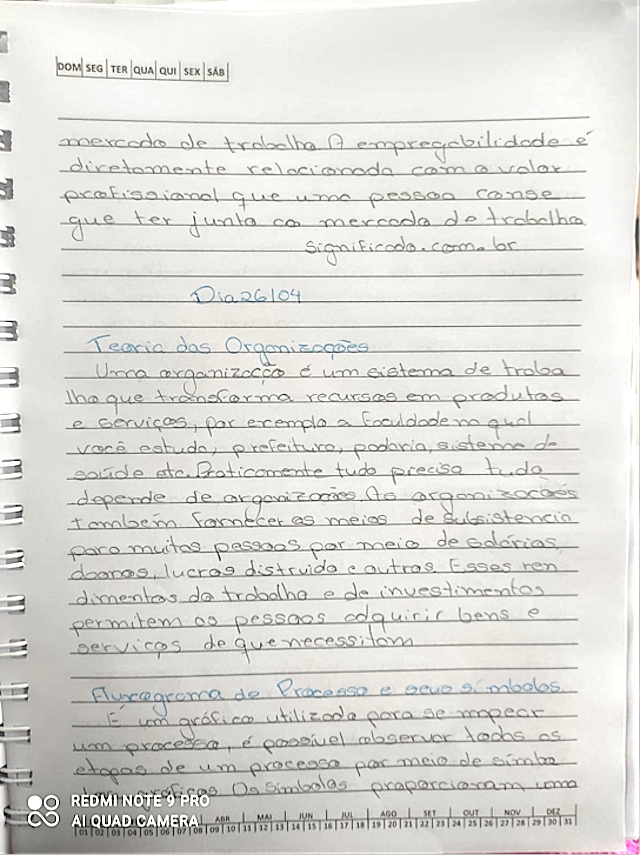 DOM SEG TER QUA QUI SEX SÁB
mercado de trabalho A empregabilidade é
diretamente relacionada com o valor
profissional que uma pessoa conse
gue ter junto ao mercado de trabalho
significado.com.br
Dia 26/04
Teoria das Organizações
Uma organização é um sistema de traba
lho que transforma recursos em produtos
e serviços, por exemplo a faculdade n qual
você estuda, prefeitura, padaria, sistema de
saúde etc. Praticamente tudo precisa tudo
depende de organizações As organizações
também fornecer os meios de subsistencia
para muitas pessoas por meio de salários,
abonos, lucros distruido e outros Esses ren
dimentos do trabalho e de investimentos
permitem as pessoas adquirir bens e
serviços de que necessitam
Fluxograma de Processo e seus símbolos
É um gráfico utilizado para se mapear
um processo, é possivel observar todos as
etapas de um processo por meio de símbo
los gráficos Os símbolos proporcionam uma
REDMI NOTE 9 PRO
AI QUAD CAMERA
ABR MAI JUN JUL AGO SET OUT NOV DEZ
01 02 03 04 05 06 07 08 09 10 11 12 13 14 15 16 17 18 19 20 21 22 23 24 25 26 27 28 29 30 31